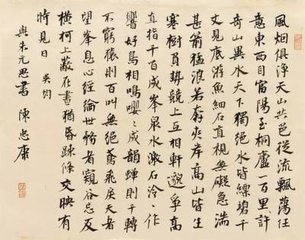 風烟俱淨天山共色從流飄蕩任
意東西自富陽至桐廬一百里許
奇山異水天下獨絕水皆縹碧千
丈見底游魚細石直視無礙急湍
甚箭猛浪若奔夾岸高山皆生
寒樹負勢競上互相軒邈爭高
直指千百成峯泉水激石泠泠作
響好鳥相鳴嚶嚶成韻蟬則千轉
不窮猿則百叫無絕鳶飛戾天者
望峯息心經綸世務者窺谷忘反
橫柯上蔽在晝猶昏疎條交映有
時見日 吳均
與朱元思書 陳忠康